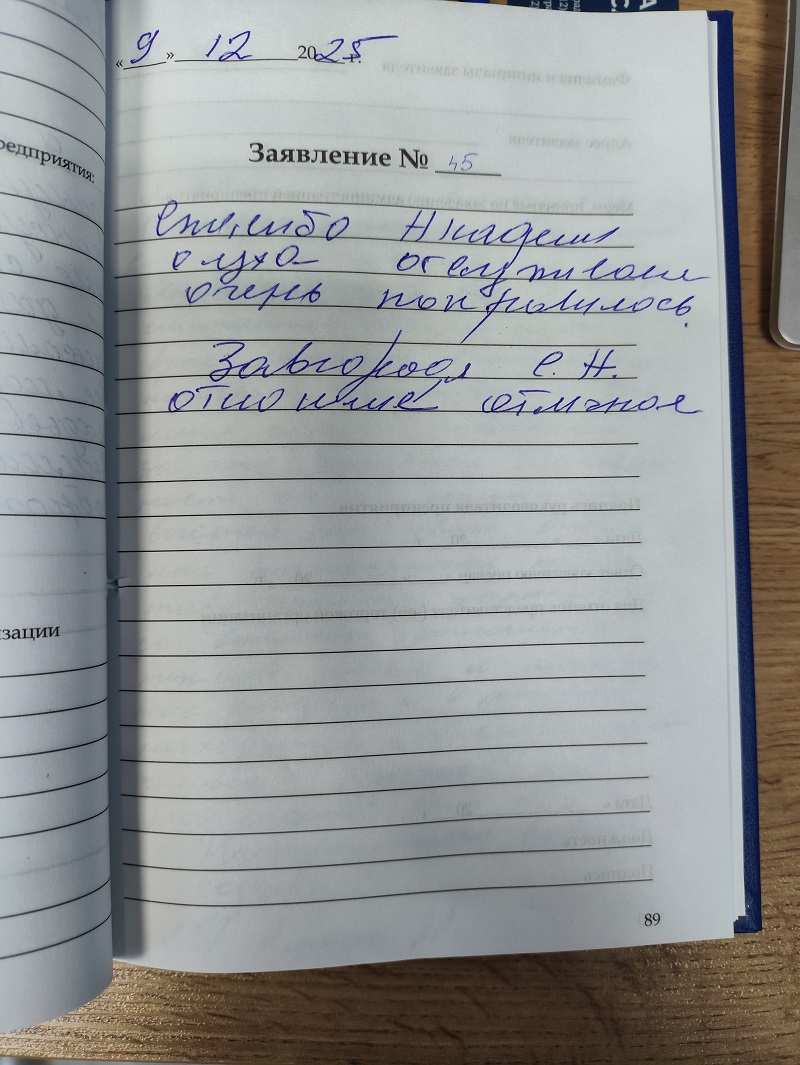 «9» 12 2025 г.
Заявление № 45
Спасибо Академия
слуха обслуживание
очень понравилось.
Завгородя С. Н.
отношение отличное
89
редприятия:
изации